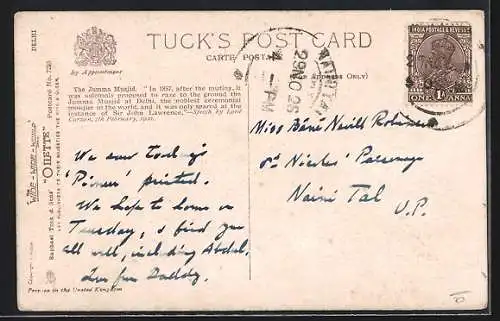 TUCK'S POST CARD
CARTE POSTALE
By Appointment
(Address Only)
The Jumma Musjid. "In 1857, after the mutiny, it
was solemnly proposed to raze to the ground the
Jumma Musjid at Delhi, the noblest ceremonial
mosque in the world, and it was only spared at the
instance of Sir John Lawrence."—Speech by Lord
Curzon, 7th February, 1900.
DELHI
"OILETTE" Postcard No. 7239
Raphael Tuck & Sons'
WIDE-WIDE-WORLD
Printed in the United Kingdom
INDIA POSTAGE & REVENUE
ONE 1A ANNA
NAINI TAL
29 NO 26
We saw today's
'Pioneer' printed.
We hope to come on
Tuesday, & find you
all well, including Abdul.
Love from Daddy.
Miss Neill
St. Nicolas' Parsonage
Naini Tal
U.P.